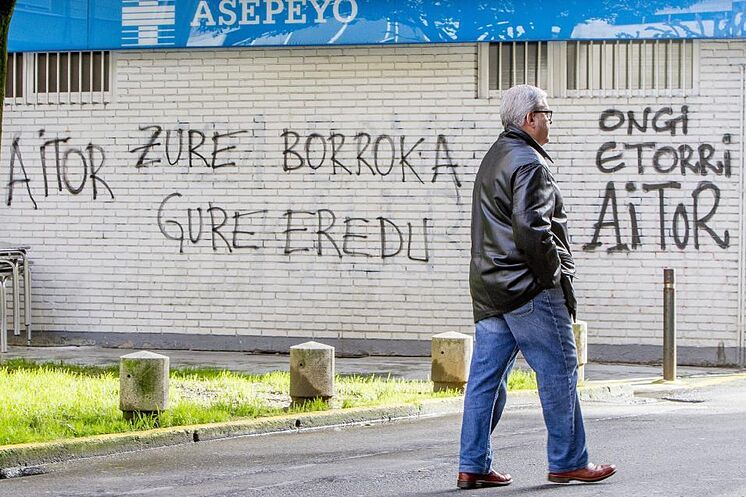 ASEPEYO
AiTOR ZURE BORROKA
GURE EREDU
ONGi
ETORRi
AiToR